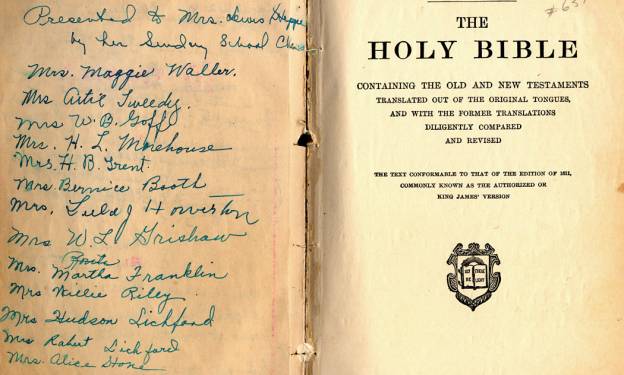 Presented to Mrs. Lewis
by her Sunday School Class
Mrs. Maggie Waller.
Mrs Artie Tweedy.
Mrs W. B. Goff
Mrs. H. L. Morehouse
Mrs. H. B. Trent.
Mrs. Bernice Booth
Mrs. Lula J Howerton
Mrs W. L. Grishaw
Mrs. Martha Franklin
Mrs Willie Riley
Mrs Hudson Lichford
Mrs Robert Lichford
Mrs. Alice Stone
THE
HOLY BIBLE
CONTAINING THE OLD AND NEW TESTAMENTS
TRANSLATED OUT OF THE ORIGINAL TONGUES,
AND WITH THE FORMER TRANSLATIONS
DILIGENTLY COMPARED
AND REVISED
THE TEXT CONFORMABLE TO THAT OF THE EDITION OF 1611,
COMMONLY KNOWN AS THE AUTHORIZED OR
KING JAMES' VERSION